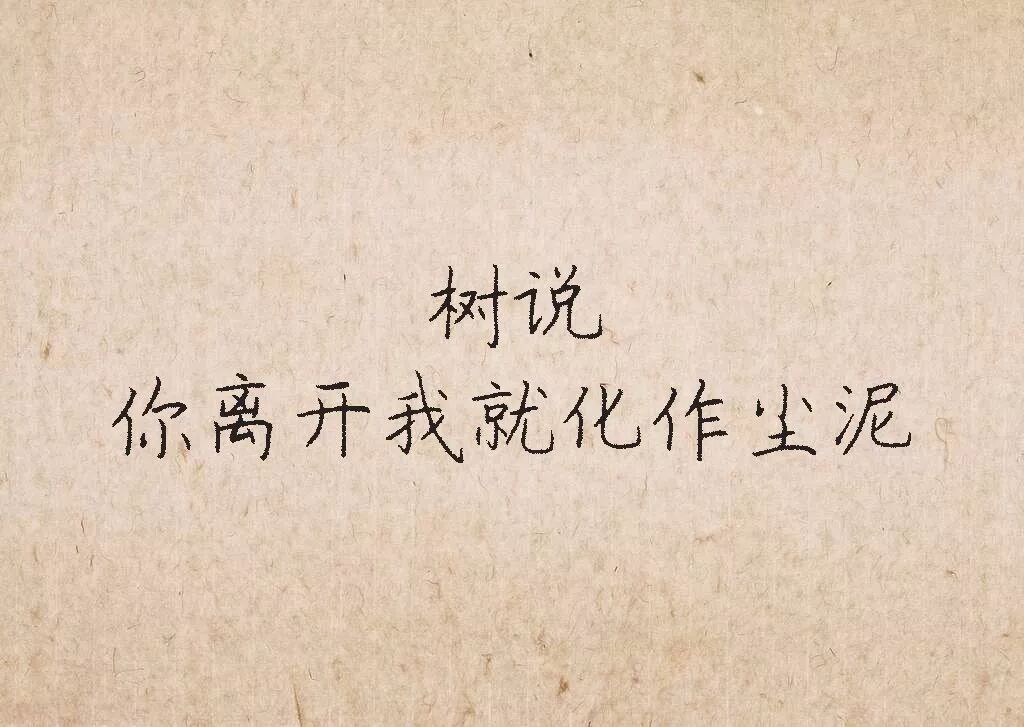 树说
你离开我就化作尘泥